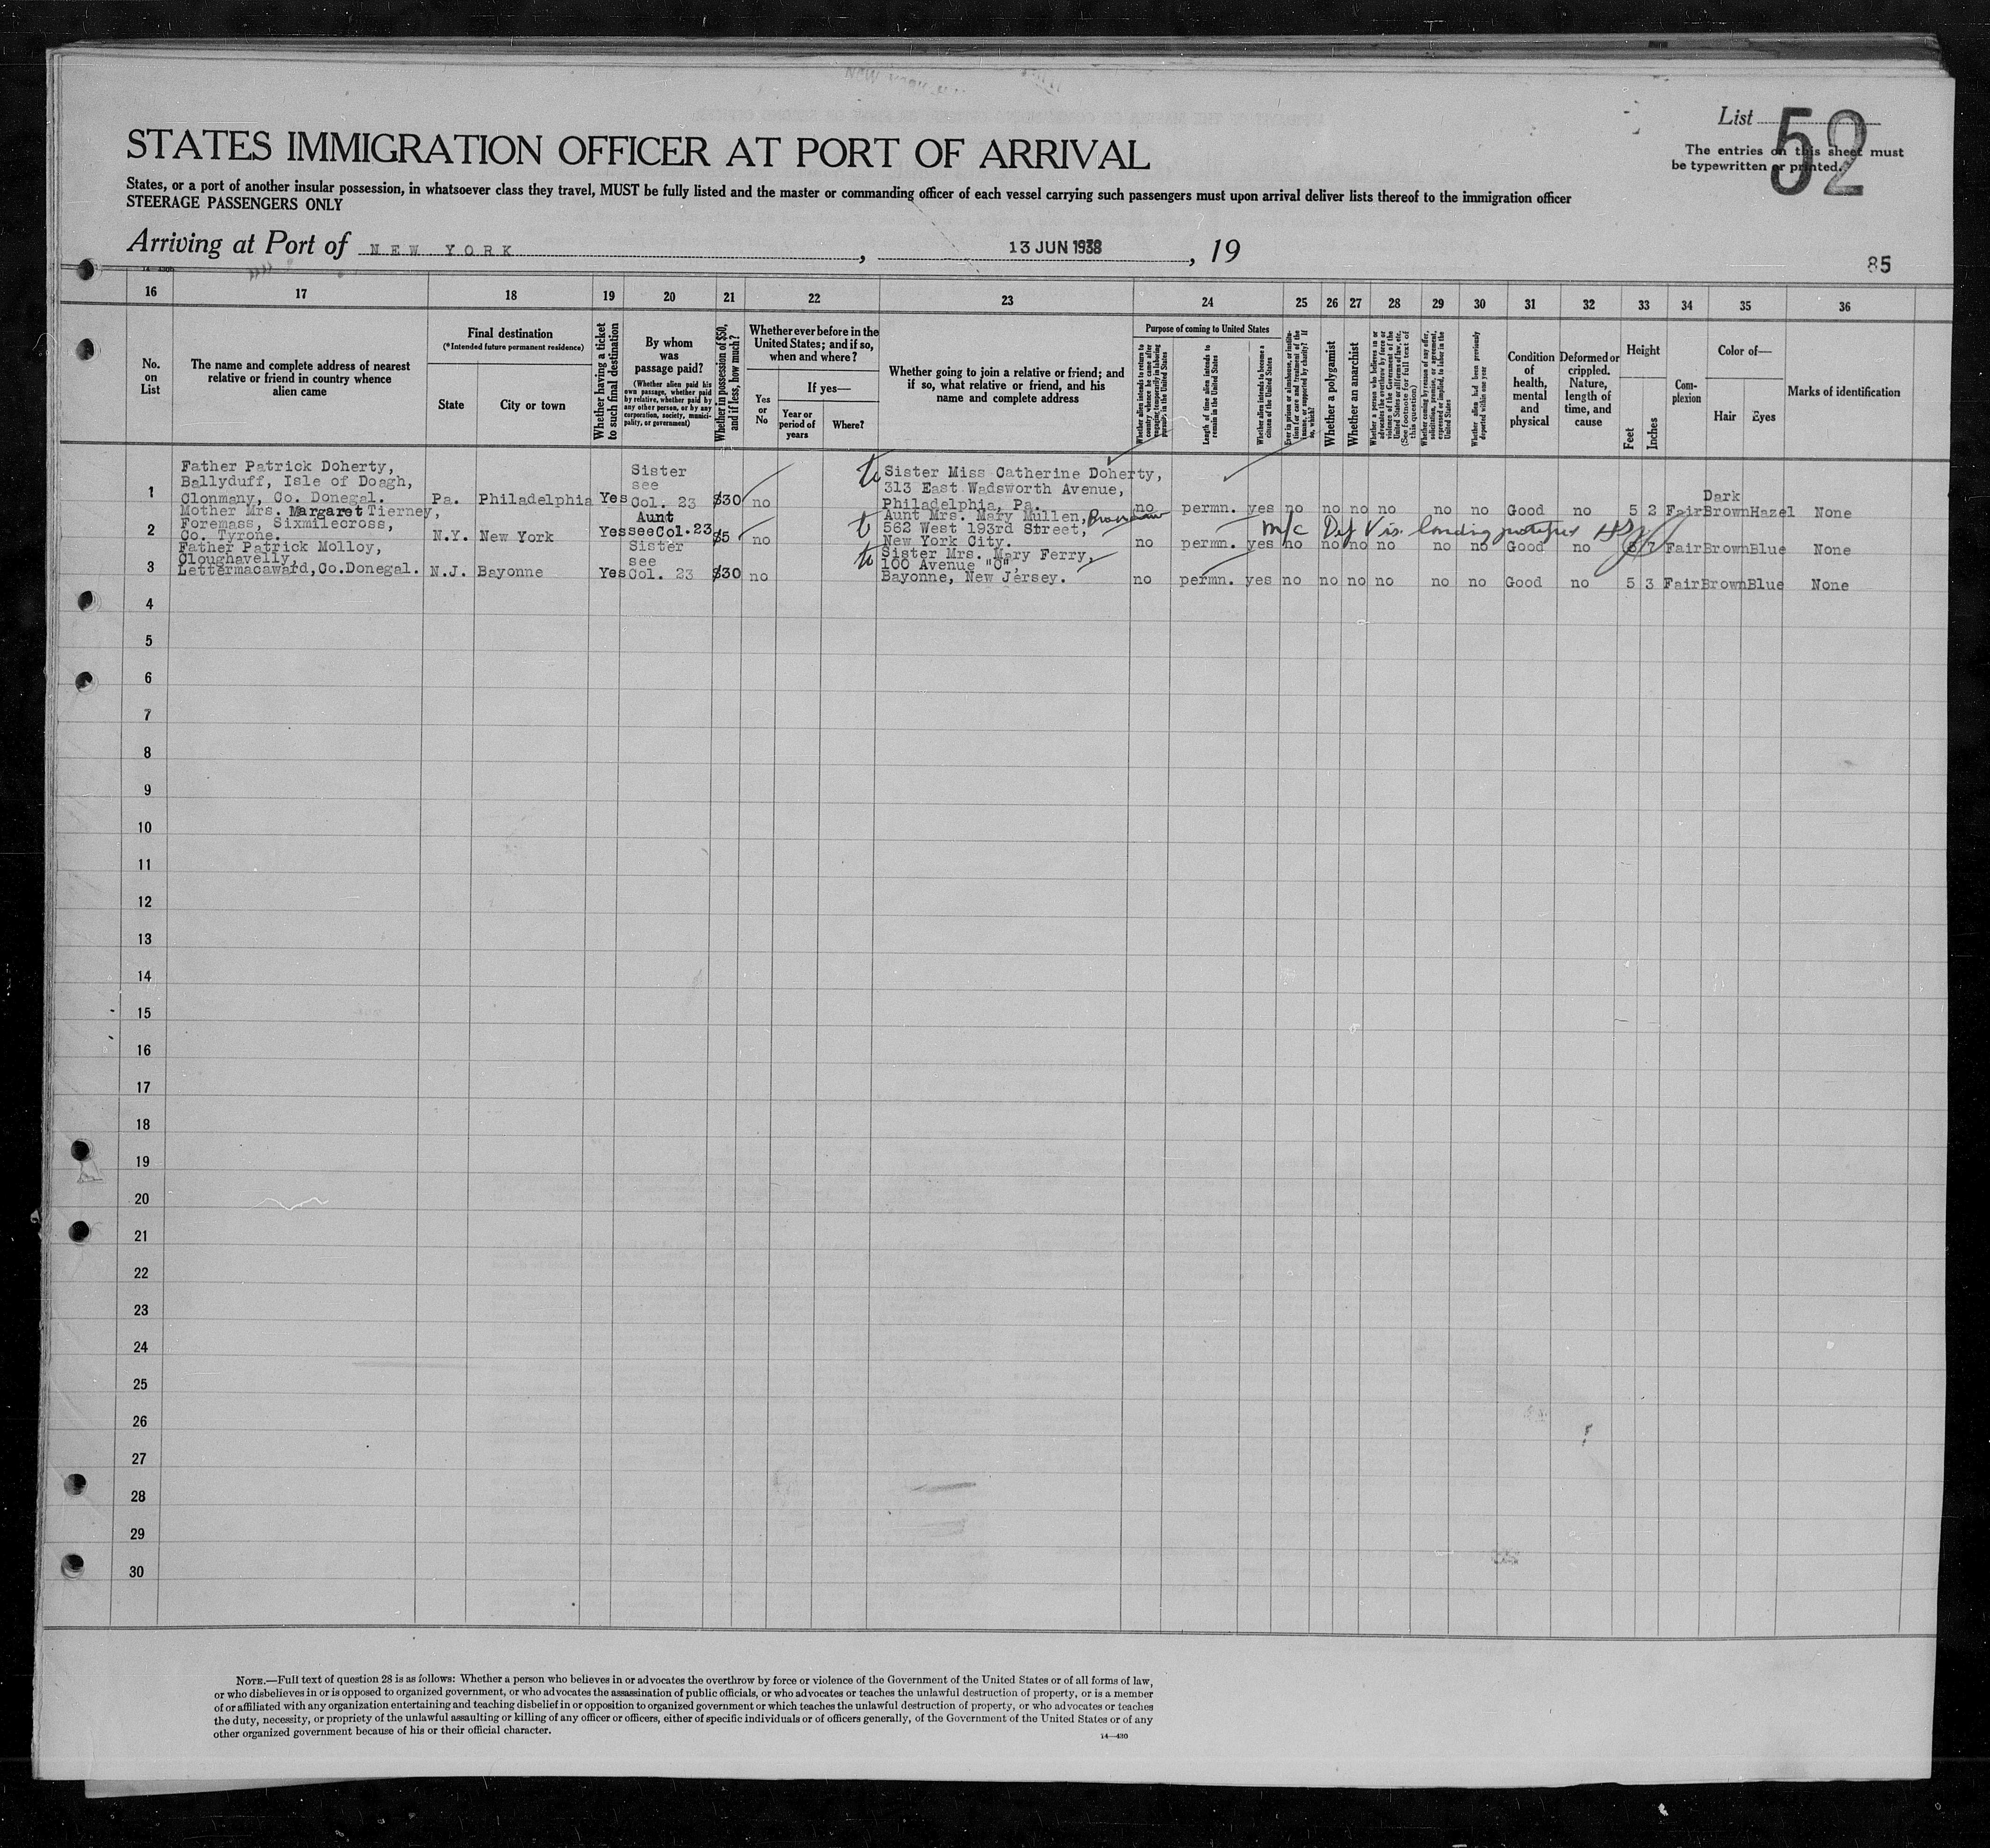 List 52
The entries on this sheet must
be typewritten or printed.
STATES IMMIGRATION OFFICER AT PORT OF ARRIVAL
States, or a port of another insular possession, in whatsoever class they travel, MUST be fully listed and the master or commanding officer of each vessel carrying such passengers must upon arrival deliver lists thereof to the immigration officer
STEERAGE PASSENGERS ONLY
Arriving at Port of NEW YORK, 13 JUN 1938, 19
85
16 17 18 19 20 21 22 23 24 25 26 27 28 29 30 31 32 33 34 35 36
No.
on
List
The name and complete address of nearest
relative or friend in country whence
alien came
Final destination
(*Intended future permanent residence)
State
City or town
Whether having a ticket
to such final destination
By whom
was
passage paid?
(Whether alien paid his
own passage, whether paid
by relative, whether paid by
any other person, or by any
corporation, society, munici-
pality, or government)
Whether in possession of $50,
and if less, how much?
Whether ever before in the
United States; and if so,
when and where?
Yes
or
No
If yes—
Year or
period of
years
Where?
Whether going to join a relative or friend; and
if so, what relative or friend, and his
name and complete address
Purpose of coming to United States
Whether alien intends to return to
country whence he came after
engaging temporarily in laboring
pursuits in the United States
Length of time alien intends to
remain in the United States
Whether alien intends to become a
citizen of the United States
Ever in prison or almshouse, or institu-
tion for care and treatment of the
insane, or supported by charity? If
so, which?
Whether a polygamist
Whether an anarchist
Whether a person who believes in or
advocates the overthrow by force or
violence of the Government of the
United States or all forms of law, etc.
(See footnote for full text of
this question)
Whether coming by reason of any offer,
solicitation, promise, or agreement,
expressed or implied, to labor in the
United States
Whether alien had been previously
deported within one year
Condition
of
health,
mental
and
physical
Deformed or
crippled.
Nature,
length of
time, and
cause
Height
Feet
Inches
Com-
plexion
Color of—
Hair
Eyes
Marks of identification
1
Father Patrick Doherty,
Ballyduff, Isle of Doagh,
Clonmany, Co. Donegal.
Pa. Philadelphia Yes
Sister
see
Col. 23
$30 no
to Sister Miss Catherine Doherty,
313 East Wadsworth Avenue,
Philadelphia, Pa.
no permn. yes no no no no no no Good no 5 2 Fair Dark Brown Hazel None
2
Mother Mrs. Margaret Tierney,
Foremass, Sixmilecross,
Co. Tyrone.
N.Y. New York Yes
Aunt
see Col. 23
$5 no
to Aunt Mrs. Mary Mullen,
562 West 193rd Street,
New York City.
m/c Def Vis.
no permn. yes no no no no no no Good no 5 7 Fair Brown Blue None
3
Father Patrick Molloy,
Cloughavelly,
Lettermacaward, Co. Donegal.
N.J. Bayonne Yes
Sister
see
Col. 23
$30 no
to Sister Mrs. Mary Ferry,
100 Avenue "C",
Bayonne, New Jersey.
no permn. yes no no no no no no Good no 5 3 Fair Brown Blue None
4
5
6
7
8
9
10
11
12
13
14
15
16
17
18
19
20
21
22
23
24
25
26
27
28
29
30
NOTE.—Full text of question 28 is as follows: Whether a person who believes in or advocates the overthrow by force or violence of the Government of the United States or of all forms of law,
or who disbelieves in or is opposed to organized government, or who advocates the assassination of public officials, or who advocates or teaches the unlawful destruction of property, or is a member
of or affiliated with any organization entertaining and teaching disbelief in or opposition to organized government or which teaches the unlawful destruction of property, or who advocates or teaches
the duty, necessity, or propriety of the unlawful assaulting or killing of any officer or officers, either of specific individuals or of officers generally, of the Government of the United States or of any
other organized government because of his or their official character.
14—430